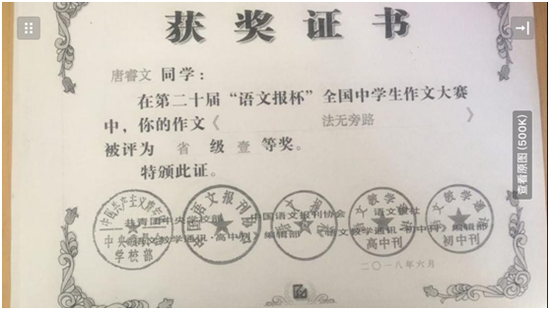 获奖证书
唐睿文 同学：
在第二十届“语文报杯”全国中学生作文大赛
中，你的作文《 法无旁路 》
被评为 省 级 壹 等奖。
特颁此证。
共青团中央学校部 中国语文报刊协会 语文报社
《语文教学通讯·高中刊》编辑部 《语文教学通讯·初中刊》编辑部
中央
学校部
高中刊
初中刊
二○一八年六月
查看原图 (500K)